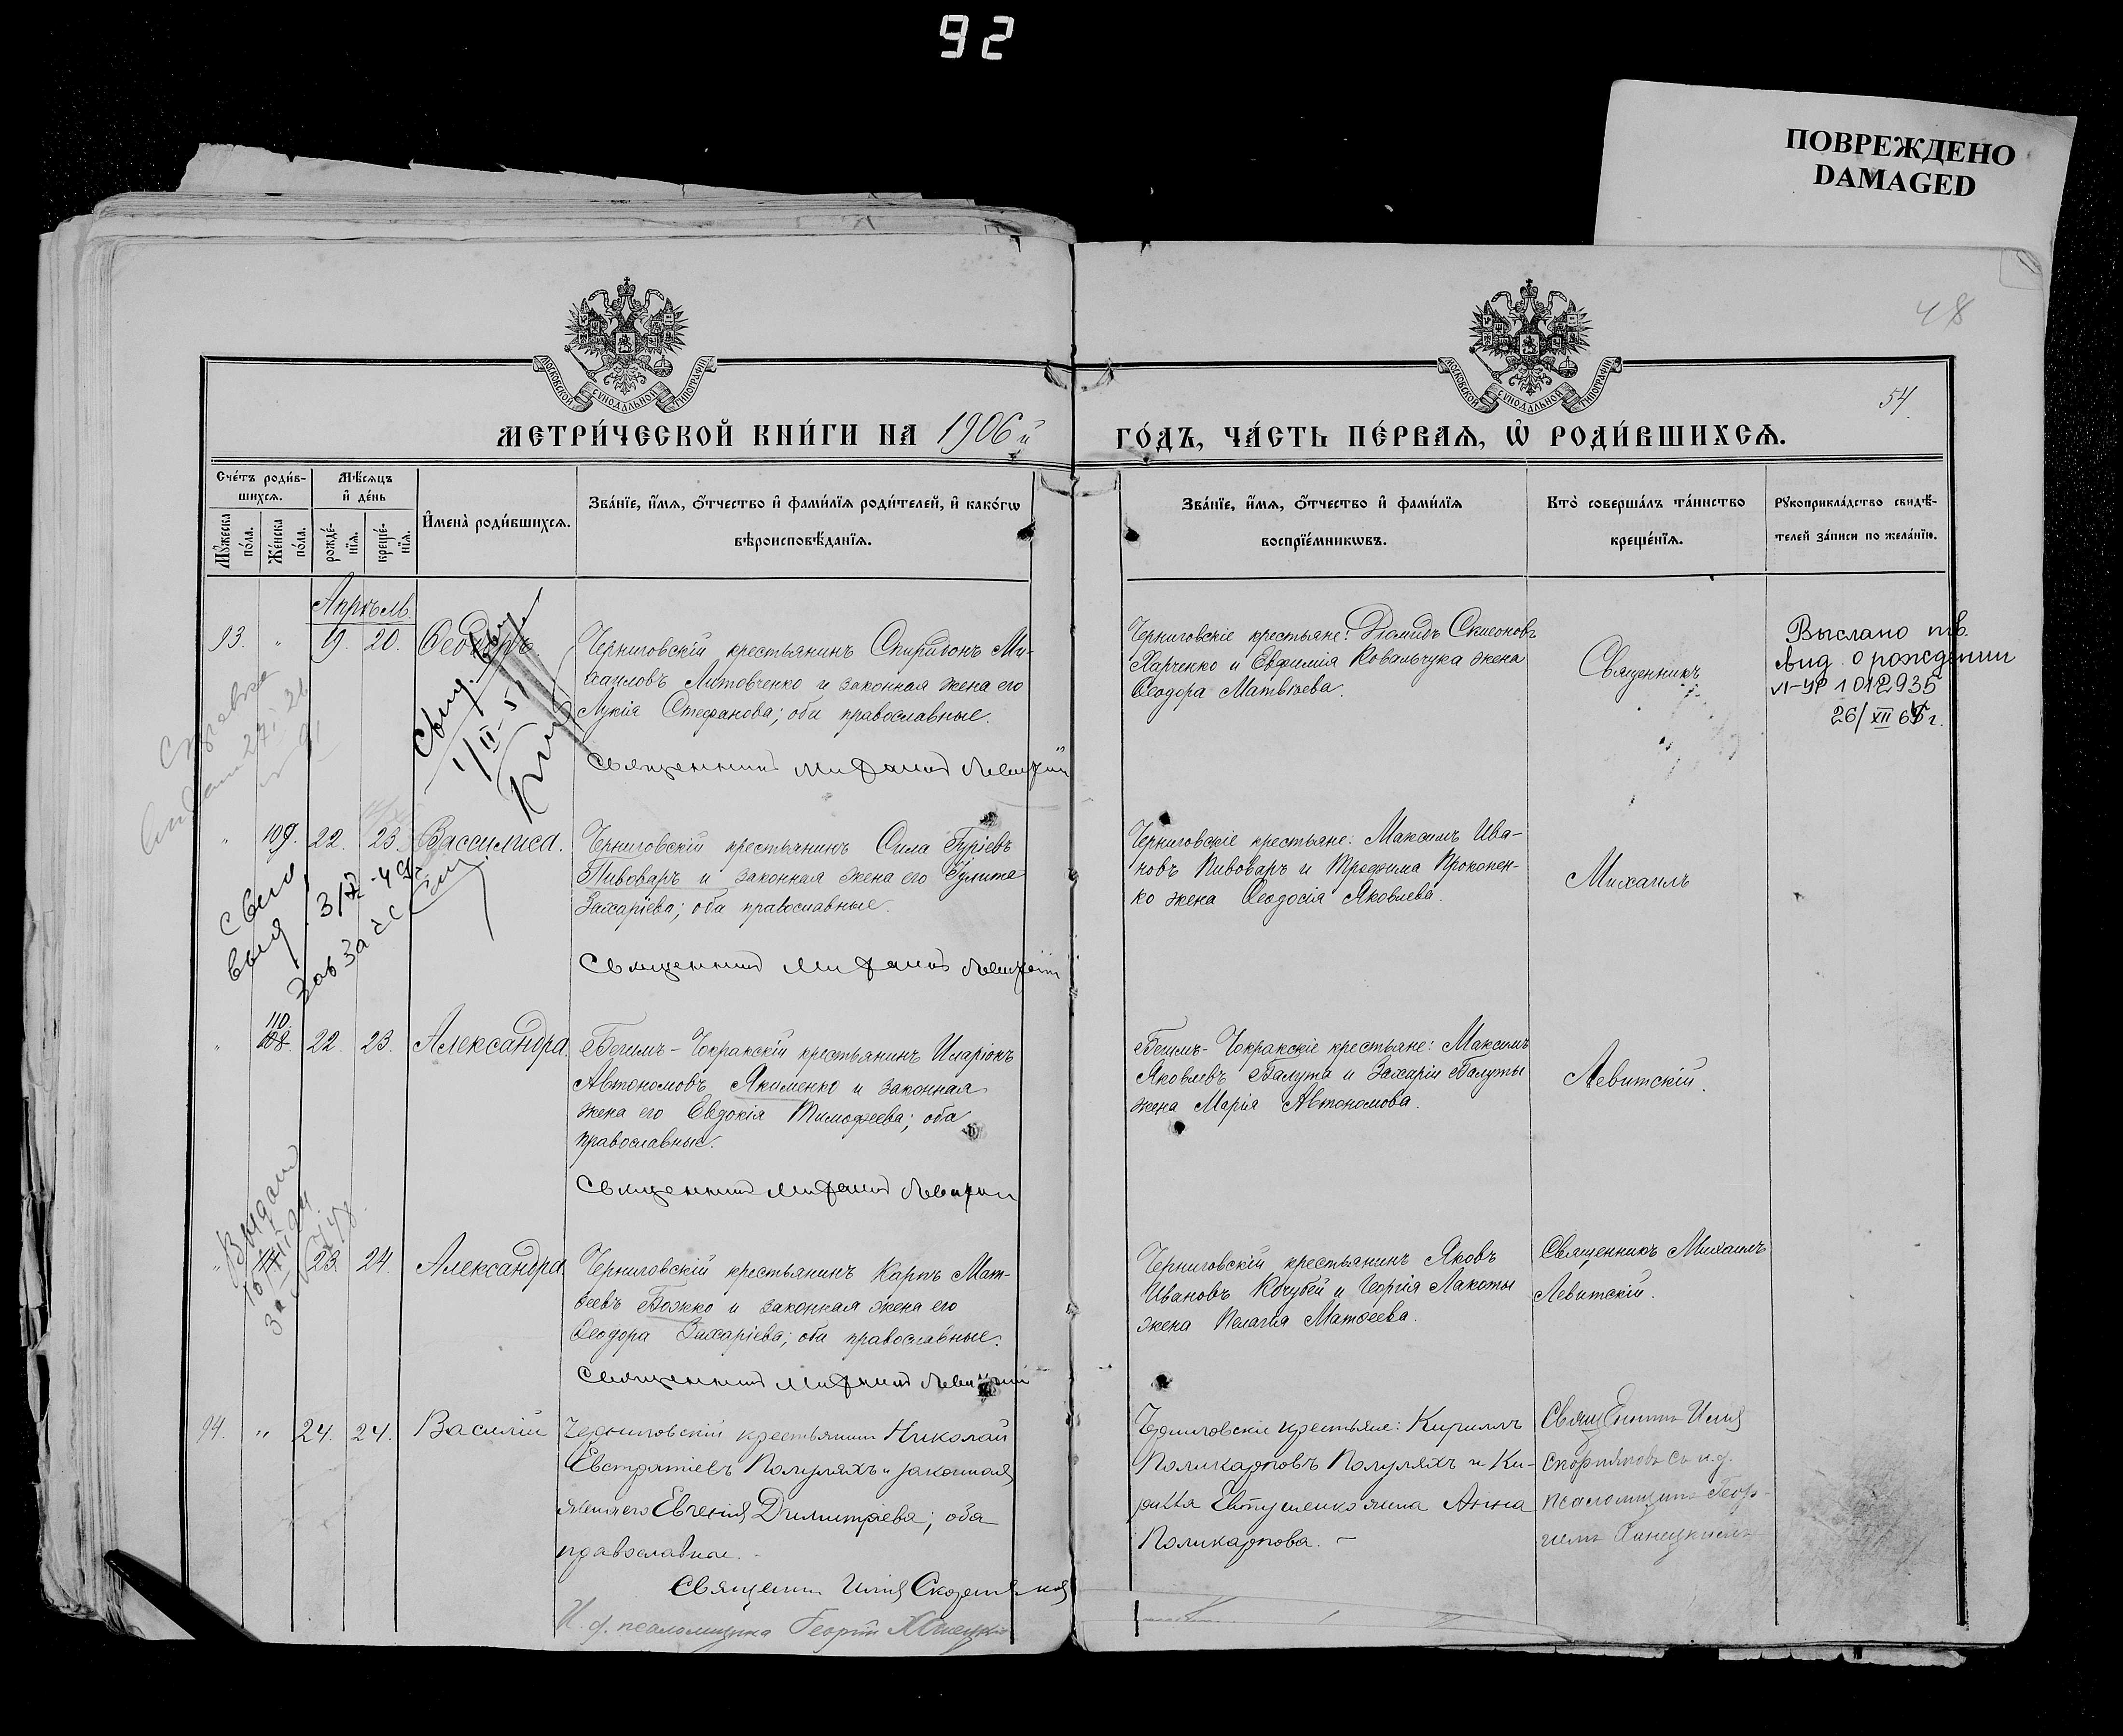 92
ПОВРЕЖДЕНО
DAMAGED
48
54
МОСКОВСКОЙ СУНОДАЛЬНОЙ ТИПОГРАФІИ
МОСКОВСКОЙ СУНОДАЛЬНОЙ ТИПОГРАФІИ
МЕТРИ́ЧЕСКОЙ КНИ́ГИ НА 1906 й ГО́ДЪ, ЧА́СТЬ ПЕ́РВАѦ, Ѡ РОДИ́ВШИХСѦ.
Сче́тъ роди́в-
шихсѧ.
Мꙋ́жеска по́ла.
Же́нска по́ла.
Мѣ́сѧцъ и҆ де́нь
рожде́-
нїѧ.
креще́-
нїѧ.
И҆мена̀ роди́вшихсѧ.
Зва́нїе, и҆́мѧ, ѻ҆́тчество и҆ фами́лїѧ роди́телей, и҆ како́гѡ
вѣроисповѣ́данїѧ.
Зва́нїе, и҆́мѧ, ѻ҆́тчество и҆ фами́лїѧ
воспрїе́мникѡвъ.
Кто̀ соверша́лъ та́инство
креще́нїѧ.
Рꙋкоприкла́дство свидѣ́-
телей за́писи по жела́нїю.
Апрѣль
93. " 19. 20. Ѳеодоръ
Черниговскій крестьянинъ Спиридонъ Ми-
хаиловъ Литовченко и законная жена его
Лукія Стефанова; оба православные.
Священникъ Михаилъ Левитскій
Черниговскіе крестьяне: Діомидъ Симеоновъ
Харченко и Евфимія Ковальчука жена
Ѳеодора Матвѣева.
Священникъ
Выслано пов.
свид. о рождении
VI-УР 1012935
26/XII 65 г.
Справка
" 109. 22. 23. Вассилиса.
Черниговскій крестьянинъ Сила Гуріевъ
Пивоваръ и законная жена его Іулита
Захаріева; оба православные.
Священникъ Михаилъ Левитскій
Черниговскіе крестьяне: Максимъ Ива-
новъ Пивоваръ и Трофима Прокопен-
ко жена Ѳеодосія Яковлева.
Михаилъ
" 110. 108. 22. 23. Александра.
Бегимъ-Чокракскій крестьянинъ Иларіонъ
Автономовъ Якименко и законная
жена его Евдокія Тимофеева; оба
православные.
Священникъ Михаилъ Левитскій
Бегимъ-Чокракскіе крестьяне: Максимъ
Яковлевъ Балута и Захарія Балуты
жена Марія Автономова.
Левитскій.
Выдано
" 111 23. 24. Александра.
Черниговскій крестьянинъ Карпъ Мат-
ѳеевъ Божко и законная жена его
Ѳеодора Захаріева; оба православные.
Священникъ Михаилъ Левитскій
Черниговскій крестьянинъ Яковъ
Ивановъ Кочубей и Георгія Лакоты
жена Пелагія Матѳеева.
Священникъ Михаилъ
Левитскій.
94. " 24. 24. Василій
Черниговскій крестьянинъ Николай
Евстратіевъ Полуляхъ и законная
жена его Евгенія Димитріева; оба
православные.
Священникъ Илія
И. д. псаломщика Георгій
Черниговскіе крестьяне: Кириллъ
Поликарповъ Полуляхъ и Ки-
рилла Евтушенко жена Анна
Поликарпова.
Священникъ Илія
съ и.д.
псаломщика Геор-